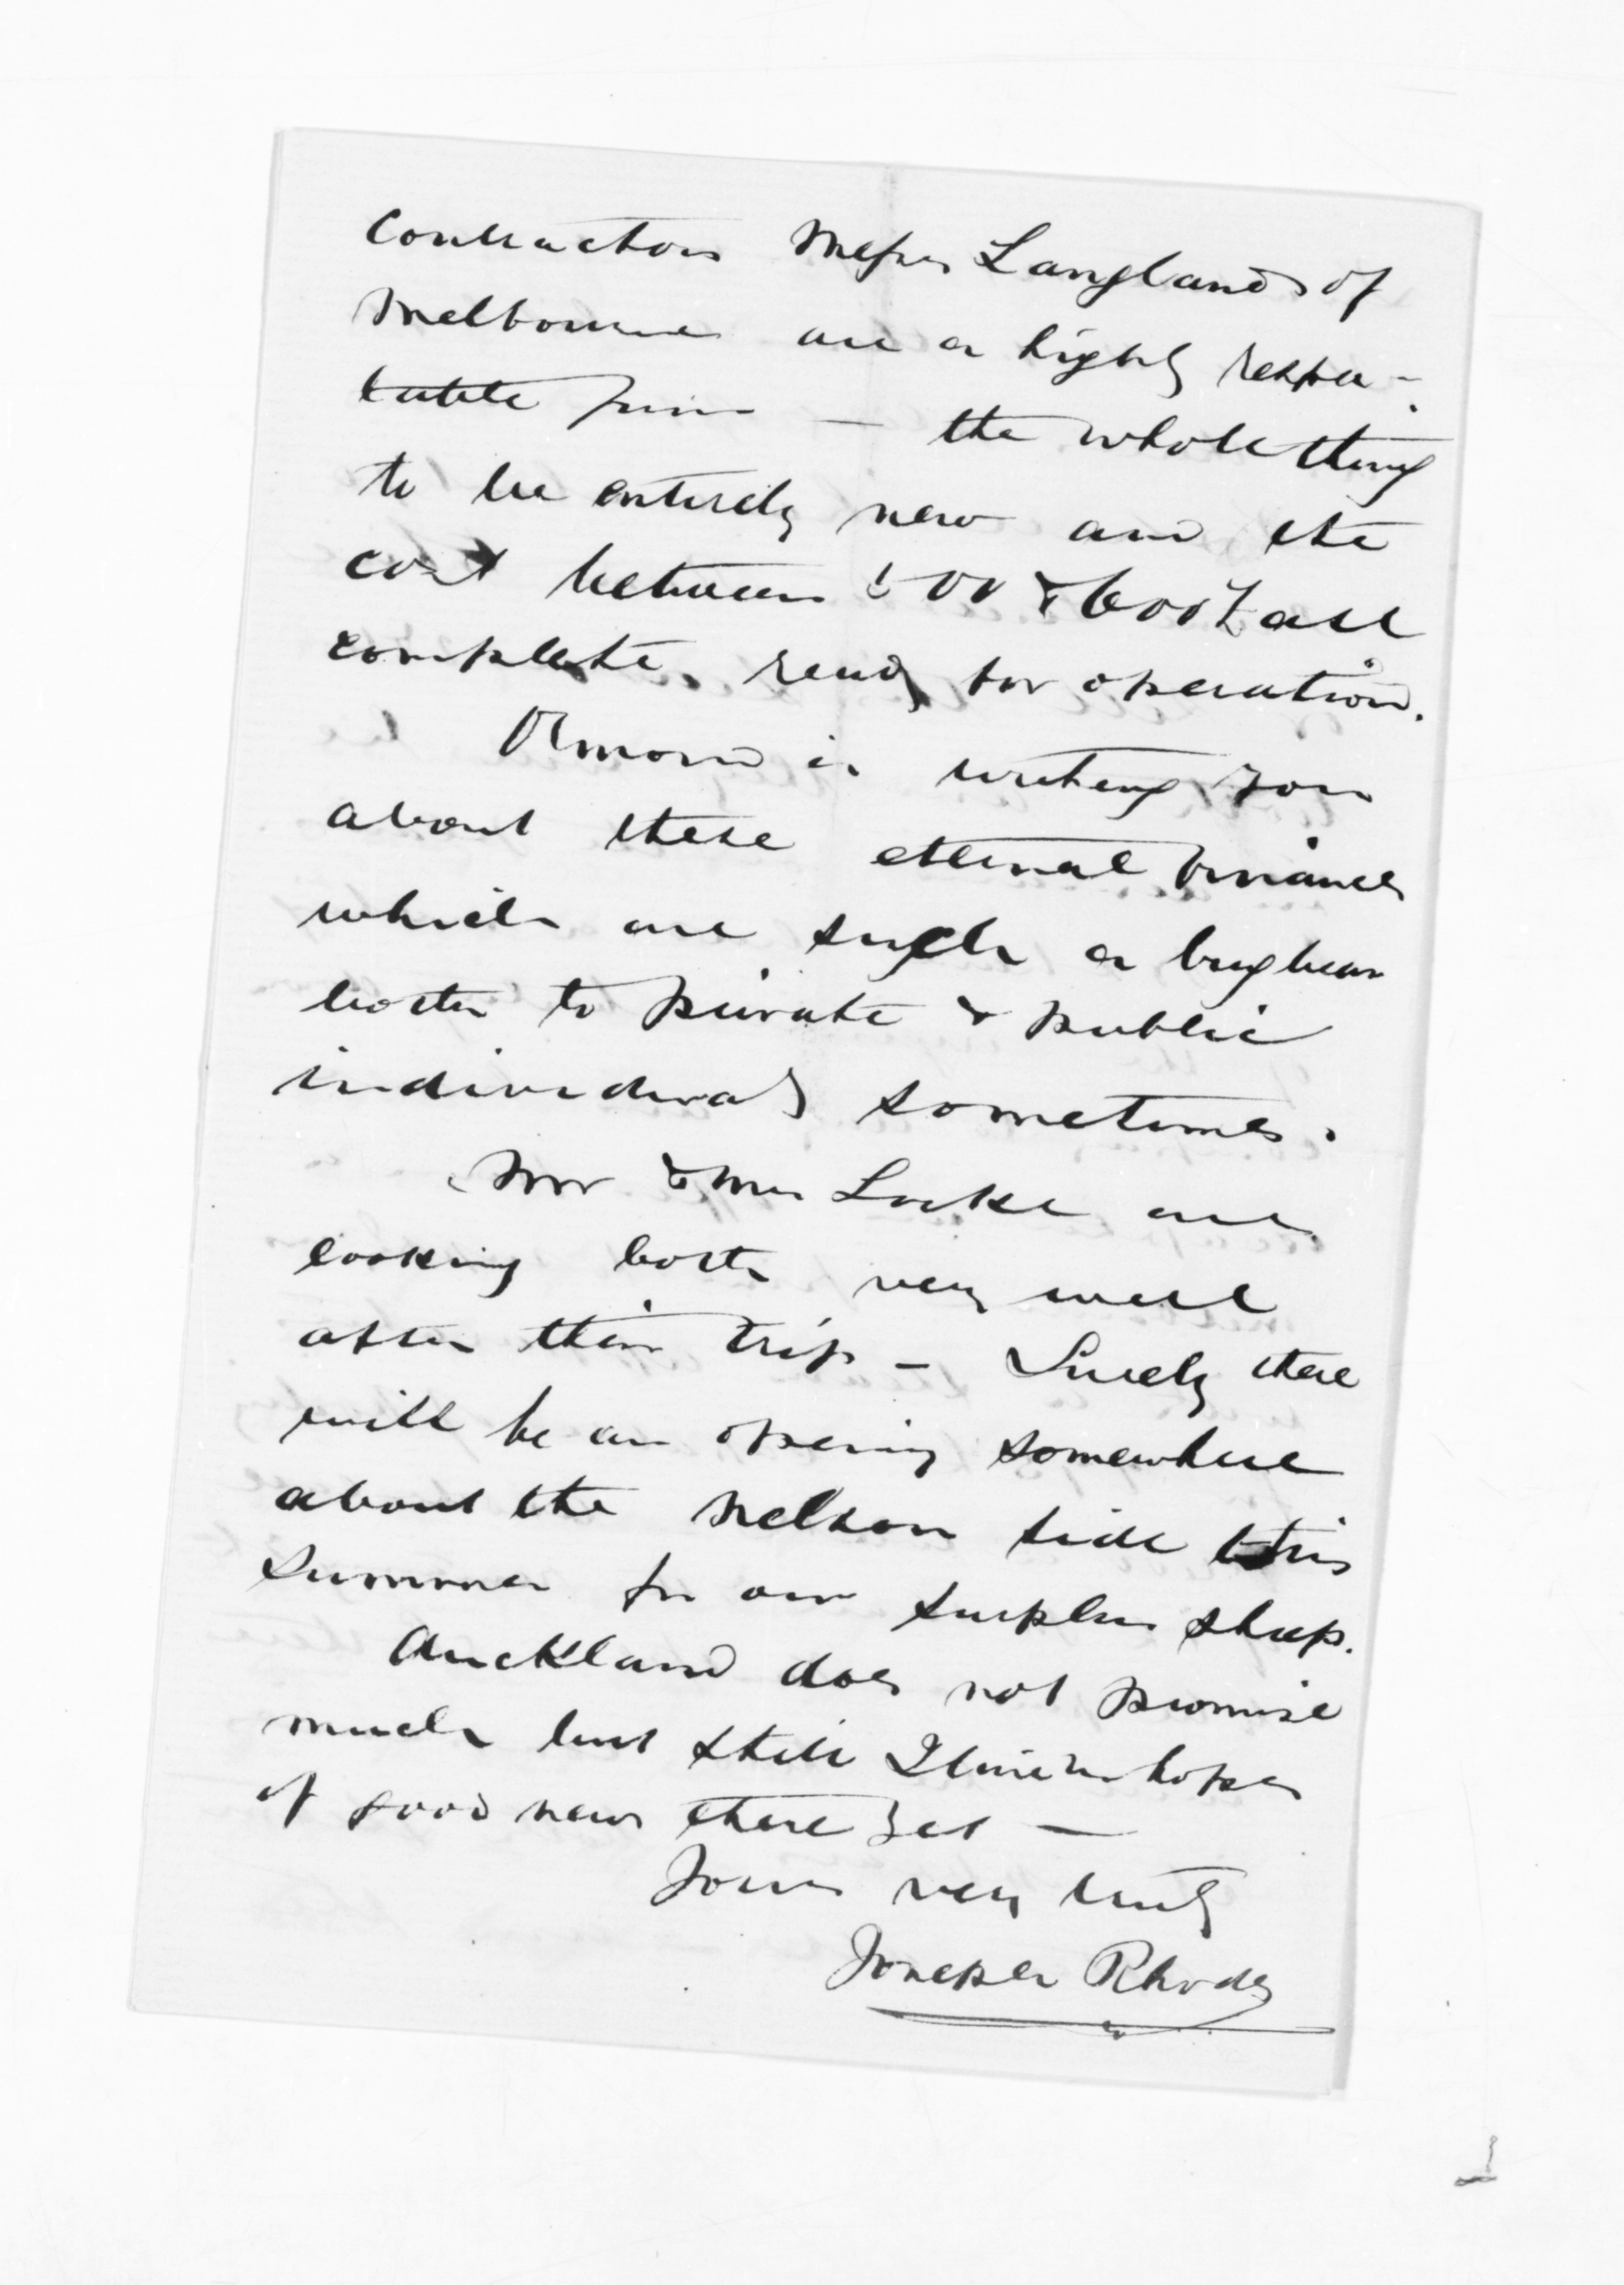 Contractors Messrs Langlands of
Melbourne are a highly respec-
table firm — the whole thing
to be entirely new and the
cost between 500 & 600£ all
complete, ready for operation.
Ormond is writing you
about these eternal finances
which are such a bugbear
both to private & public
individuals sometimes.
Mr & Mrs Locke are
looking both very well
after their trip — Surely there
will be an opening somewhere
about the Nelson side this
summer for our surplus sheep.
Auckland does not promise
much but still I live in hopes
of good news there yet —
Yours very truly
Joseph Rhodes